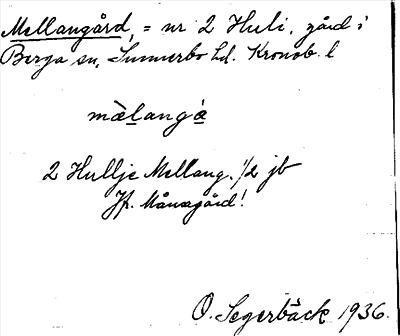 Mellangård, = nr 2 Huli, gård i
Berga sn, Sunnerbo hd. Kronob. l
mèlangå̀
2 Hullje Mellang. 1/2 jb
Jfr. Månsagård!
O. Segerbäck 1936.